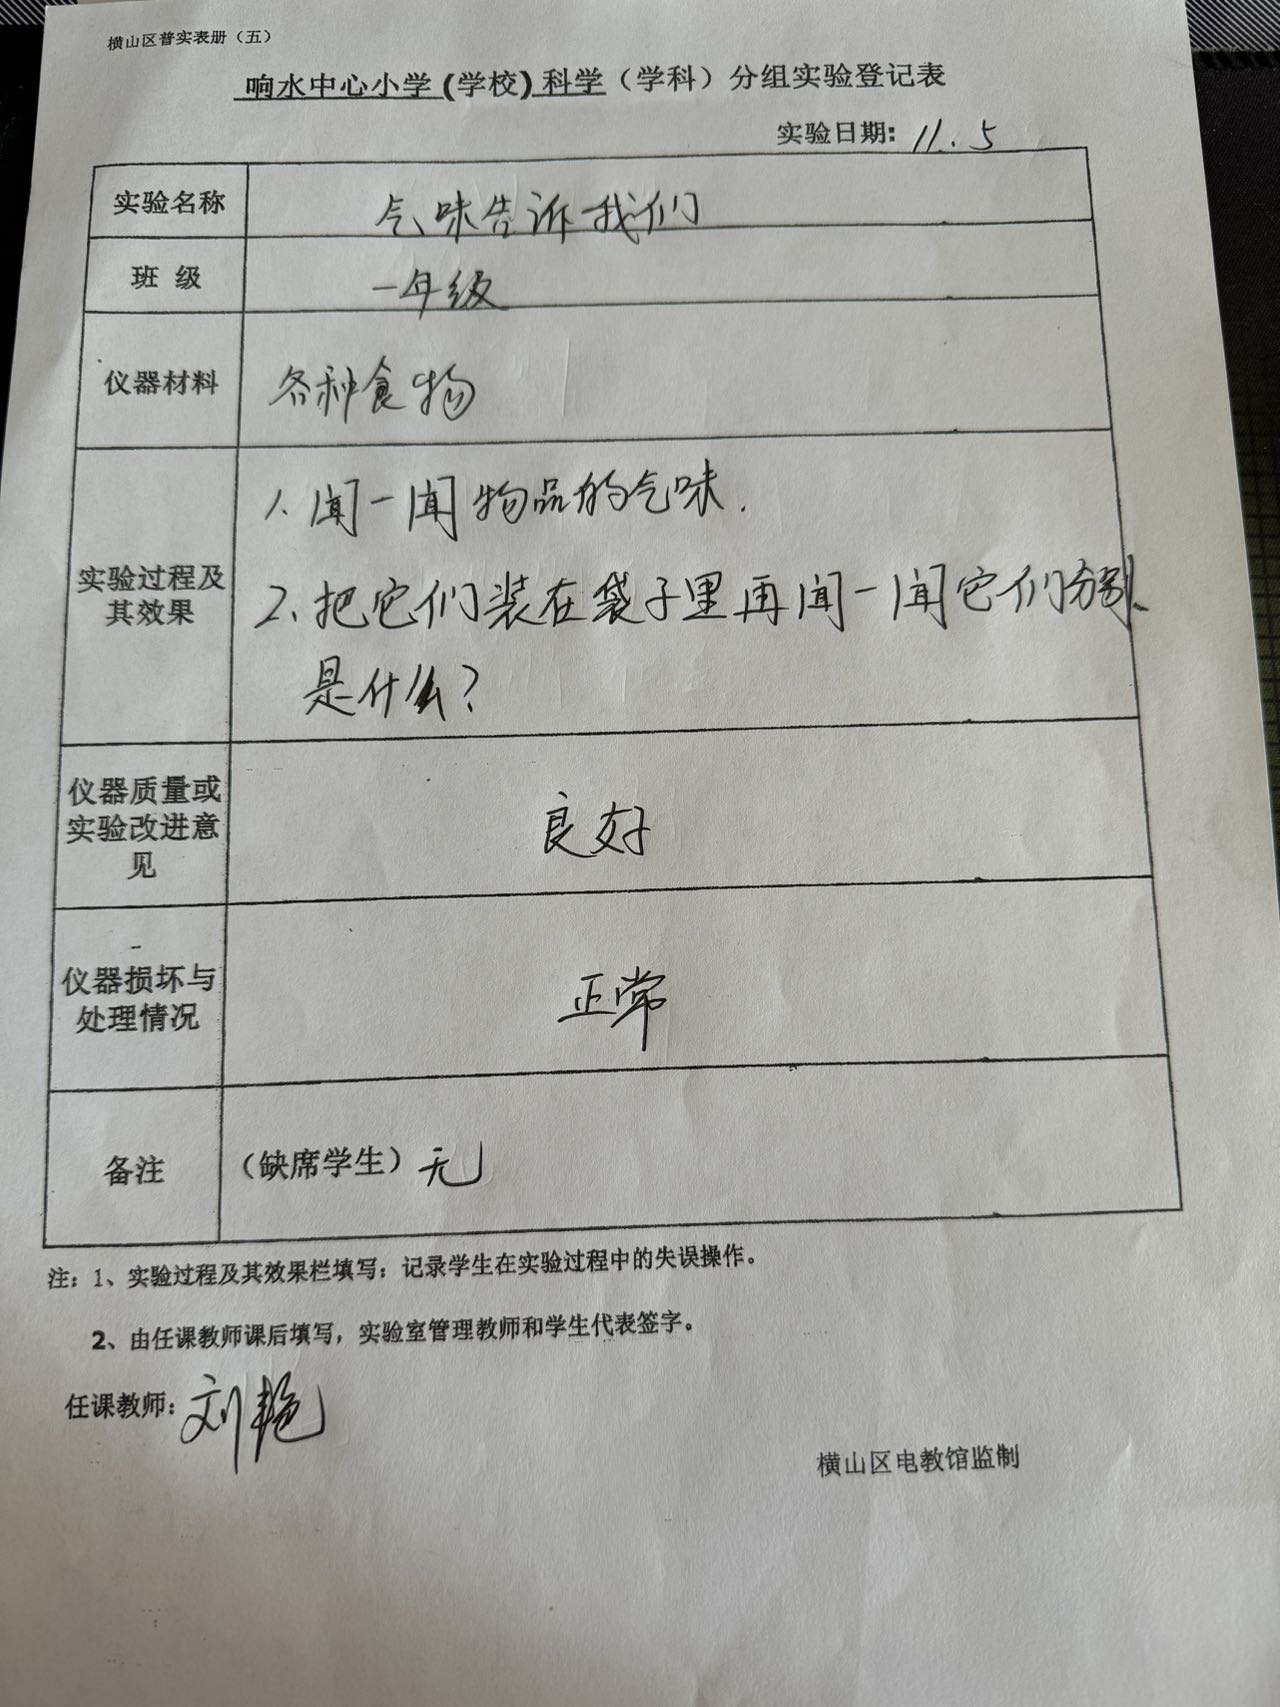 横山区普实表册（五）
响水中心小学(学校)科学（学科）分组实验登记表
实验日期：11.5
实验名称 气味告诉我们
班 级 一年级
仪器材料 各种食物
1、闻一闻物品的气味.
实验过程及
其效果
2、把它们装在袋子里再闻一闻它们分别
是什么？
仪器质量或
实验改进意
见
良好
仪器损坏与
处理情况
正常
备注 （缺席学生）无
注：1、实验过程及其效果栏填写：记录学生在实验过程中的失误操作。
2、由任课教师课后填写，实验室管理教师和学生代表签字。
任课教师：刘艳
横山区电教馆监制